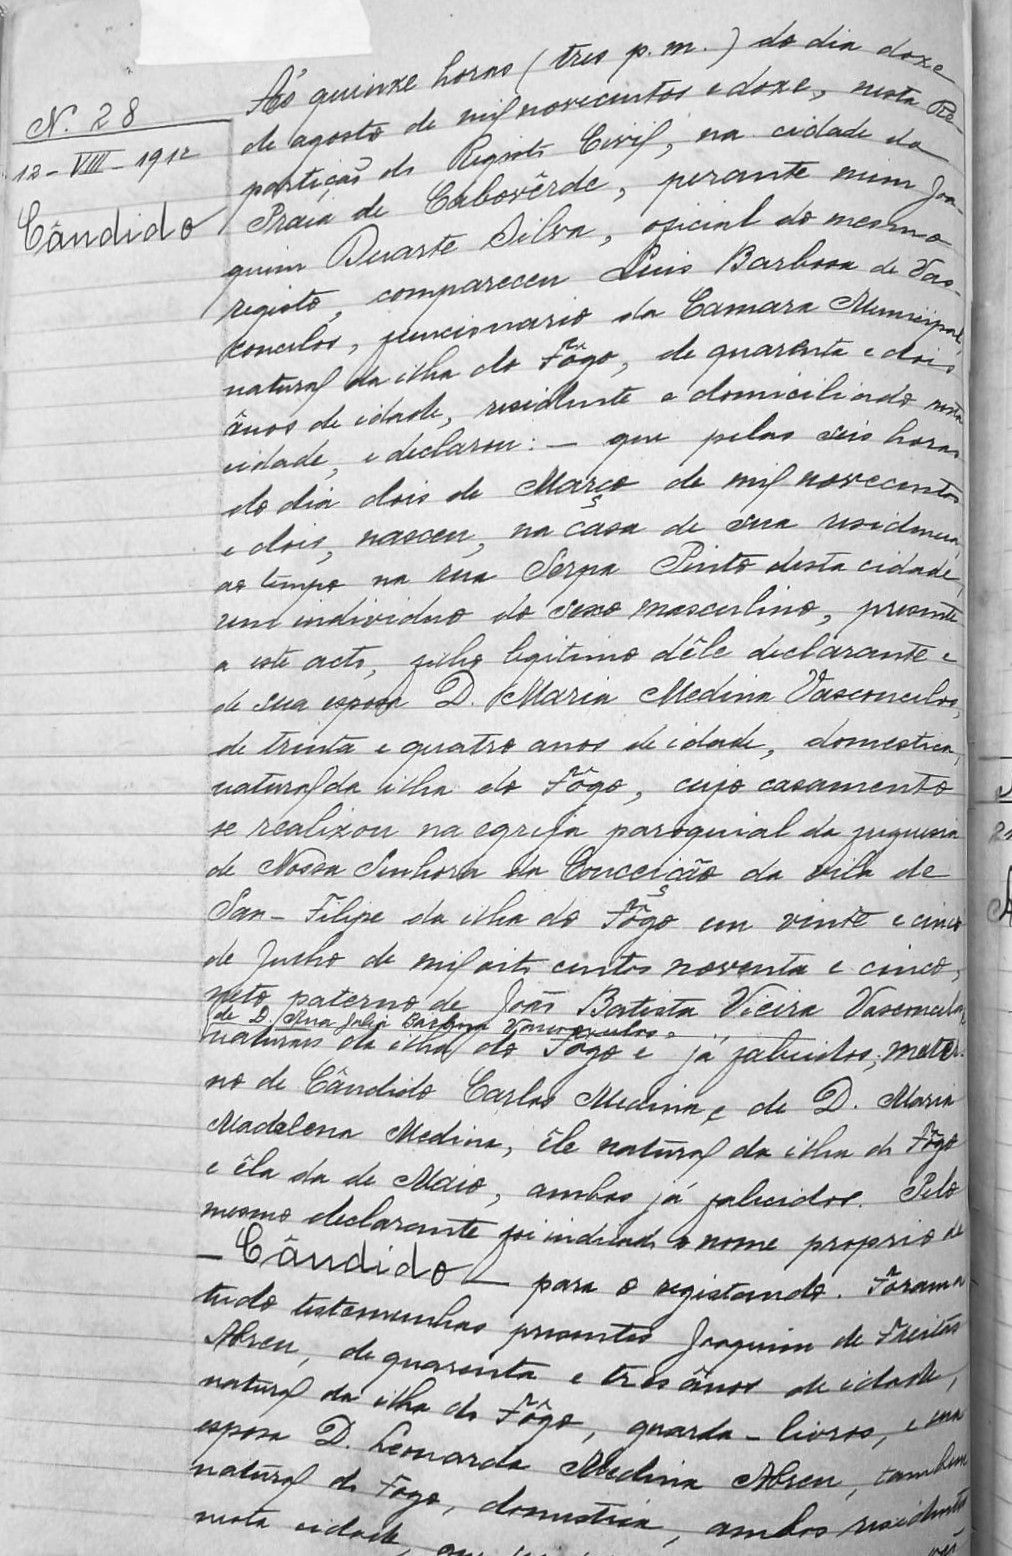 N. 28
12-VIII-1912
Cândido
Ás quinze horas (tres p. m.) do dia doze
de agosto de mil novecentos e doze, nesta Re-
partição do Registo Civil, na cidade da
Praia de Caboverde, perante mim Joa-
quim Duarte Silva, oficial do mesmo
registo, compareceu Luis Barbosa de Vas-
concelos, funcionario da Camara Municipal,
natural da ilha do Fôgo, de quarenta e dois
ânos de idade, residente e domiciliado nesta
cidade, e declarou: - que pelas seis horas
do dia dois de Março de mil novecentos
e dois, nasceu, na casa de sua residencia,
ao tempo na rua Serpa Pinto desta cidade,
um individuo do sexo masculino, presente
a este acto, filho legitimo dêle declarante e
de sua esposa D. Maria Medina Vasconcelos,
de trinta e quatro anos de idade, domestica,
natural da ilha do Fôgo, cujo casamento
se realizou na egreja paroquial da freguesia
de Nossa Senhora da Conceição da vila de
San-Filipe da ilha do Fôgo em vinte e cinco
de Julho de mil oito centos noventa e cinco,
neto paterno de João Batista Vieira Vasconcelos,
de D. Ana Julia Barbosa Vasconcelos,
naturais da ilha do Fôgo e já falecidos; mater-
no de Cândido Carlos Medina, e de D. Maria
Madalena Medina, êle natural da ilha do Fôgo
e éla da de Maio, ambos já falecidos. Pelo
mesmo declarante foi indicado o nome proprio de
- Cândido - para o registando. Fôram a
tudo testemunhas presentes Joaquim de Freitas
Abreu, de quarenta e tres ânos de idade,
natural da ilha do Fôgo, guarda-livros, e sua
esposa D. Leonarda Medina Abreu, tambem
natural do Fogo, domestica, ambos residentes
nesta cidade,